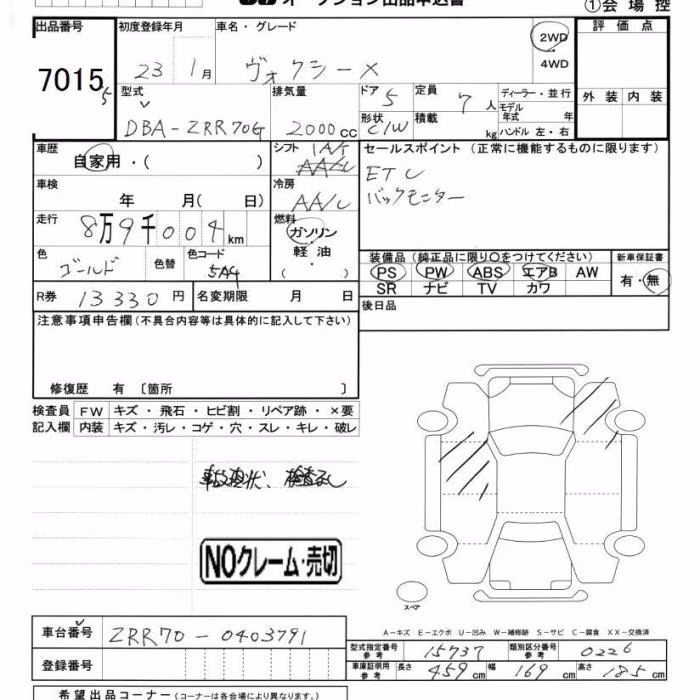 オークション出品申込書
①会場控
出品番号 初度登録年月 車名・グレード 2WD 評価点
7015 5 23 1月 ヴォクシー X ・4WD
型式 排気量 ドア 5 定員 7人 ディーラー・並行 外装 内装
DBA-ZRR70G 2000cc 形状 C/W 積載 kg モデル年式 年
ハンドル 左・右
車歴 自家用・( ) シフト IAT セールスポイント(正常に機能するものに限ります)
車検 年 月( 日) 冷房 AA/C ETC
バックモニター
走行 8万9千004km 燃料 ガソリン・軽油・( )
色 ゴールド 色替 色コード 装備品(純正品に限り○をつけてください) 新車保証書
PS PW ABS エアB AW 有・無
SR ナビ TV カワ
R券 13330円 名変期限 月 日 後日品
注意事項申告欄(不具合内容等は具体的に記入して下さい)
修復歴 有〔箇所 〕
検査員 FW キズ・飛石・ヒビ割・リペア跡・×要
記入欄 内装 キズ・汚レ・コゲ・穴・スレ・キレ・破レ
事故現状、検査なし
NOクレーム・売切
スペア
A-キズ E-エクボ U-凹み W-補修跡 S-サビ C-腐食 XX-交換済
車台番号 ZRR70-0403791
型式指定番号 参考 15737 類別区分番号 参考 0226
登録番号 車庫証明用 参考 長さ 459cm 幅 169cm 高さ 185cm
希望出品コーナー(コーナーは各会場により異なります。)